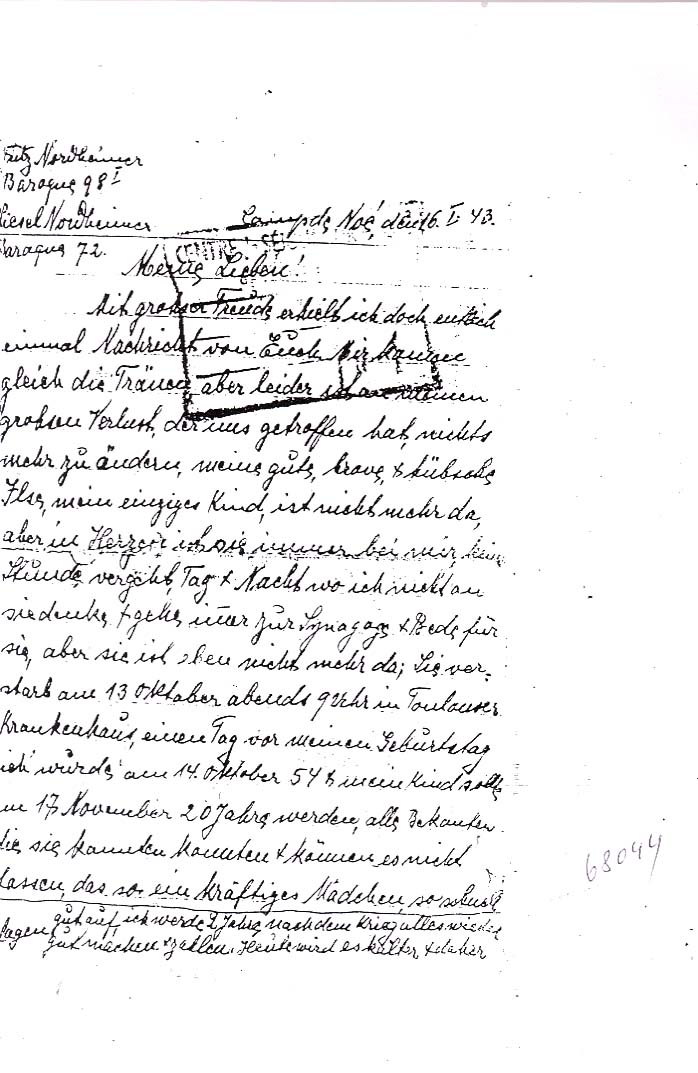 Fritz Nordheimer
Baraque 98 I
Liesel Nordheimer Camp de Noé, den 16. I. 43.
Baraque 72.
CENTRE
Meine Lieben!
Mit grosser Freude erhielt ich doch entlich
einmal Nachricht von Euch. Mir kamen
gleich die Tränen, aber leider ist an meinen
grohsen Verlust, der uns getroffen hat, nichts
mehr zu ändern, meine gute, brave, & hübsche
Ilse, mein einziges Kind, ist nicht mehr da,
aber in Herzen ist sie immer bei mir, keine
Stunde vergeht, Tag & Nacht wo ich nicht an
sie denke, & gehe imer zur Synagoge & Bede für
sie, aber sie ist eben nicht mehr da; Sie ver=
starb am 13 Oktober abends 9 Uhr in Toulouser
Krankenhaus, einen Tag vor meinen Geburtstag
ich würde am 14. Oktober 54 & mein Kind sollte
am 17 November 20 Jahre werden, alle Bekanten
die sie kannten konnten & können es nicht
fassen, das so ein kräftiges Mädchen, so schnell
gut auf, ich werde 2 Jahre nach dem Krieg alles wieder
sagen gut machen & zahlen. Heute wird es kälter & daher
68044